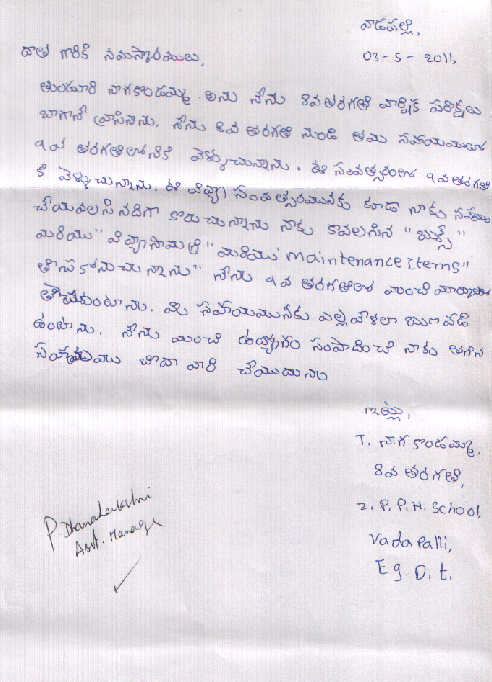 వాడపల్లి,
03-5-2011,
దాత గారికి నమస్కారములు,
తుంగూరి నాగకొండమ్మ అను నేను 8వ తరగతి వార్షిక పరీక్షలు
బాగానే వ్రాసినాను. నేను 8వ తరగతి నుండి తమ సహాయముతో
9వ తరగతిలోనికి వెళ్ళుచున్నాను. ఈ సంవత్సరంలో 9వ తరగతి
కి వెళ్ళుచున్నాను. ఈ విద్యా సంవత్సరమునకు కూడా నాకు సహాయం
చేయవలసినదిగా కోరుచున్నాను నాకు కావలసిన "బుక్స్"
మరియు "విద్యాసామగ్రి" మరియు "maintenance items"
తీసుకొనుచున్నాను" నేను 9వ తరగతిలో మంచి మార్కులు
తెచ్చుకుంటాను. మీ సహాయమునకు ఎల్లవేళలా ఋణపడి
ఉంటాను. నేను మంచి ఉద్యోగం సంపాదించి నాకు తగిన
సహాయము పేదవారికి చేయుదును
ఇట్లు,
T. నాగకొండమ్మ,
8వ తరగతి,
Z. P. P. H. School,
Vadapalli,
E g D. t.
P Dhanalakshmi
Asst. Manager